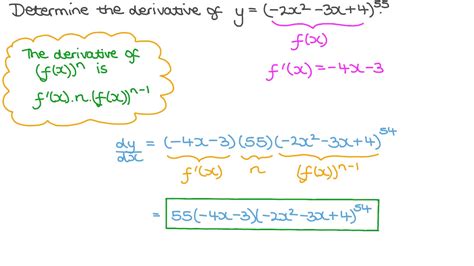 Determine the derivative of y = (-2x² -3x+4)⁵⁵.
f(x)
f'(x) = -4x-3
The derivative of
(f(x))ⁿ is
f'(x).n.(f(x))ⁿ⁻¹
dy/dx = (-4x-3)(55)(-2x²-3x+4)⁵⁴
f'(x) n (f(x))ⁿ⁻¹
= 55(-4x-3)(-2x²-3x+4)⁵⁴